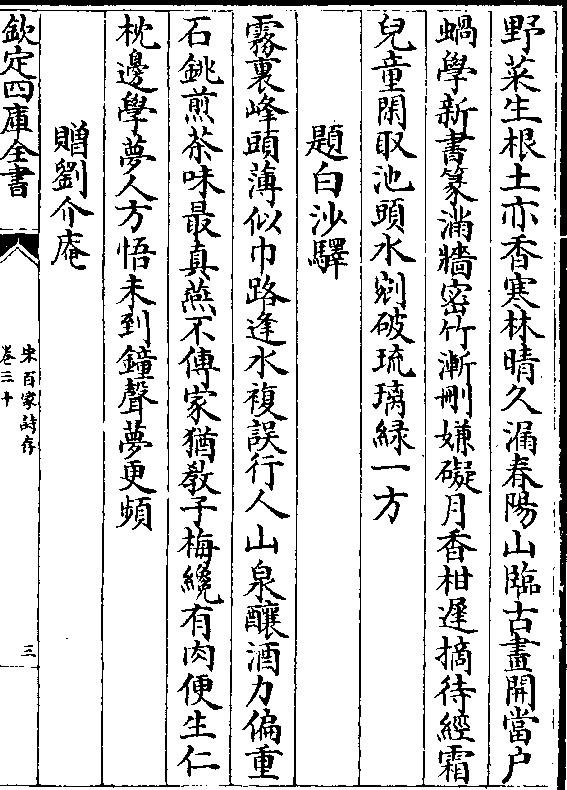 野菜生根土亦香寒林晴久漏春陽山臨古畫開當户
蝸學新書篆滿牆密竹漸刪嫌礙月香柑遲摘待經霜
兒童閑取池頭水剜破琉璃緑一方
題白沙驛
霧裏峰頭薄似巾路逢水複誤行人山泉釀酒力偏重
石銚煎茶味最真燕不傳家猶敎子梅纔有肉便生仁
枕邊學夢人方悟未到鐘聲夢更頻
贈劉介庵
欽定四庫全書
宋百家詩存
卷三十
三